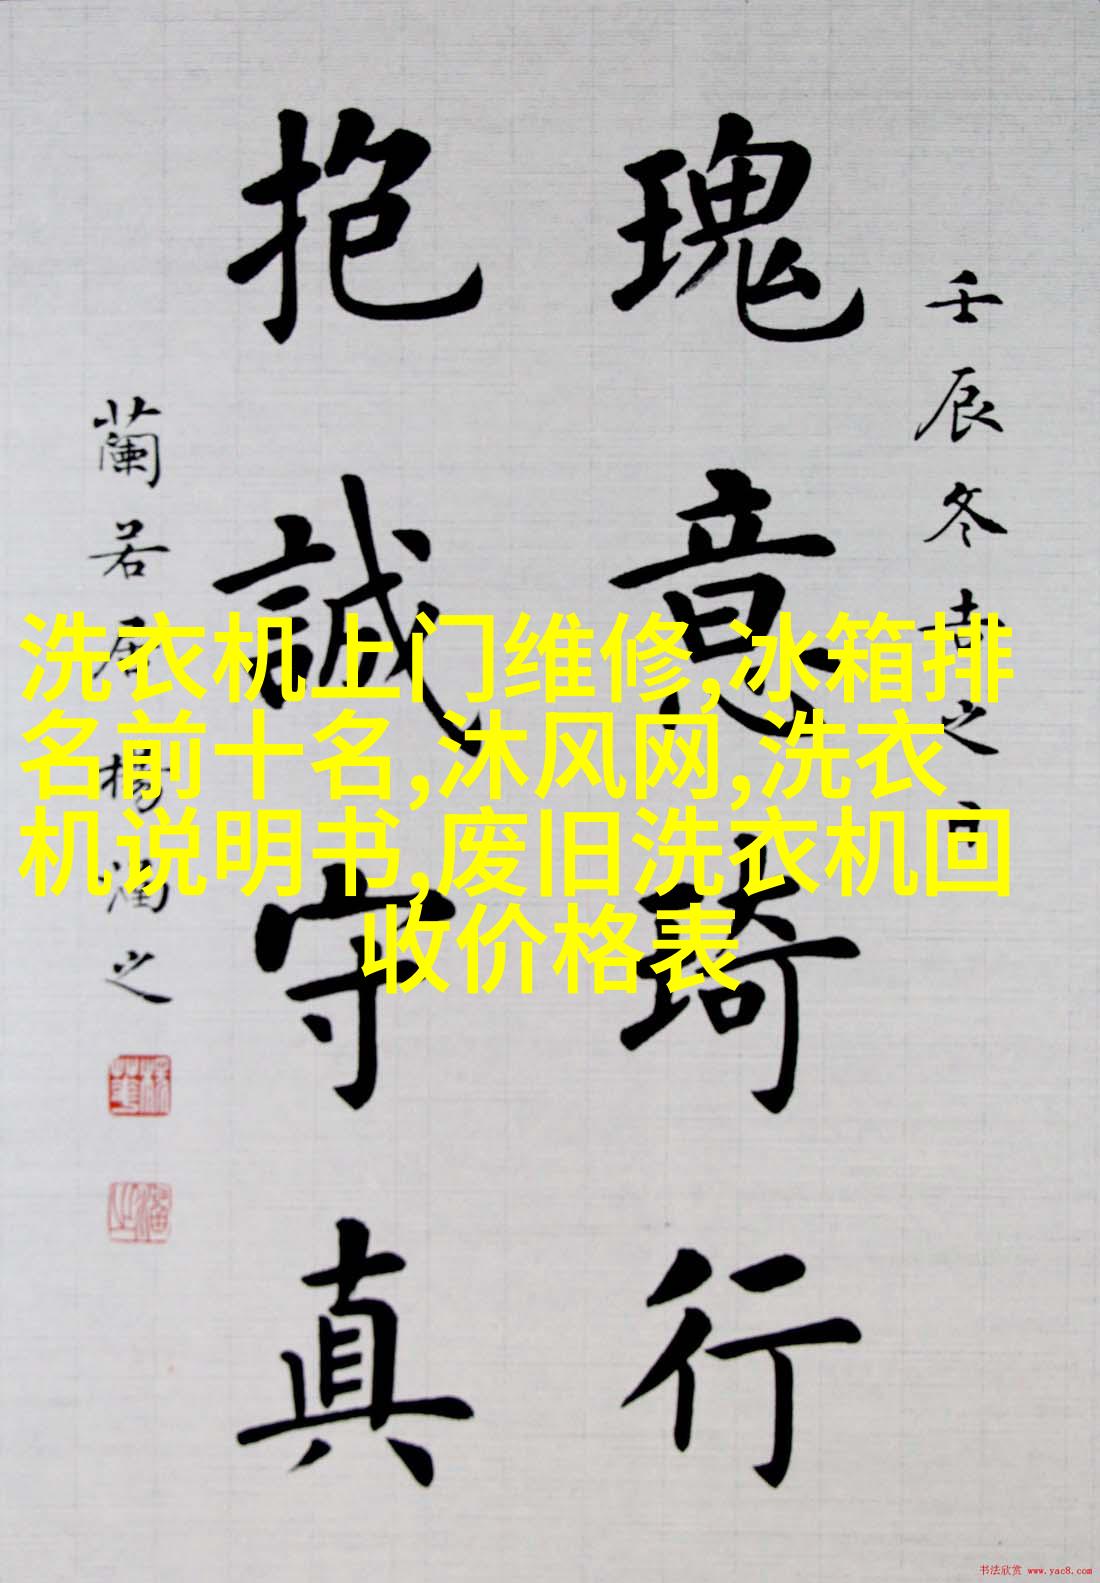 壬辰冬吉之日
瑰意琦行
抱誠守真
蘭若居楊涵之
洗衣机上门维修,冰箱排
名前十名,沐风网,洗衣
机说明书,废旧洗衣机回
收价格表
书法欣赏 www.yac8.com